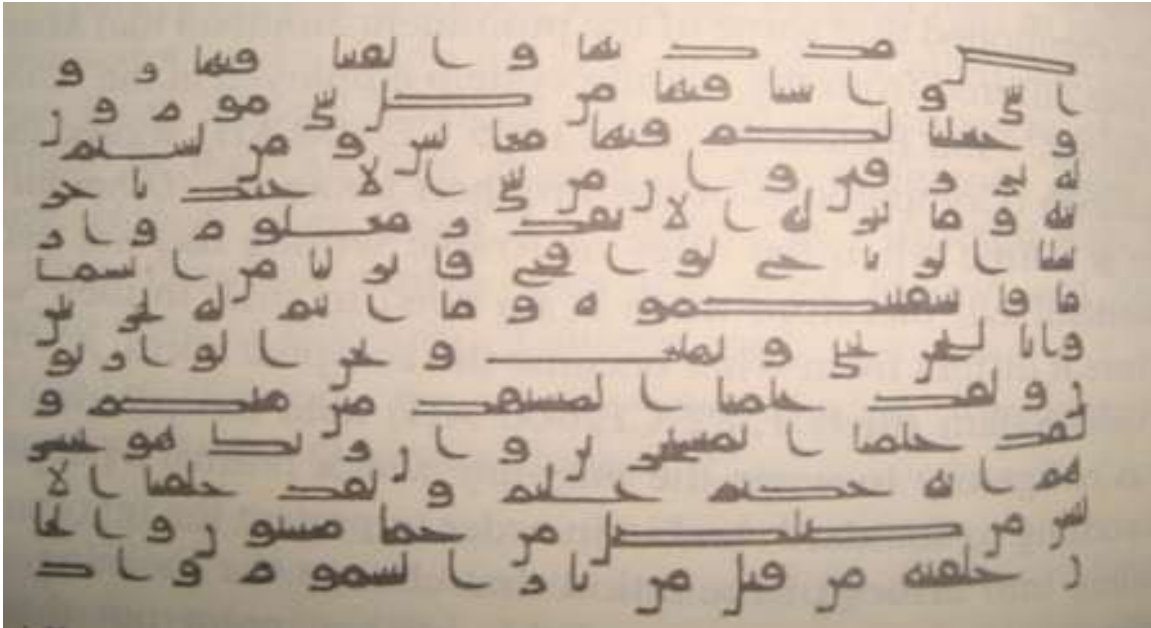 رض مددنها والقينا فيها رو
اسي وانبتنا فيها من كل شي موزون
وجعلنا لكم فيها معايش ومن لستم
له برزقين وان من شي الا عندنا خز
ئنه وما ننزله الا بقدر معلوم وار
سلنا الريح لوقح فانزلنا من السما
ما فاسقينكموه وما انتم له بخزنين
وانا لنحن نحي ونميت ونحن الوارثو
ن ولقد علمنا المستقدمين منكم و
لقد علمنا المستخرين وان ربك هو يحشر
هم انه حكيم عليم ولقد خلقنا الا
نسن من صلصل من حما مسنون والجا
ن خلقنه من قبل من نار السموم واذ